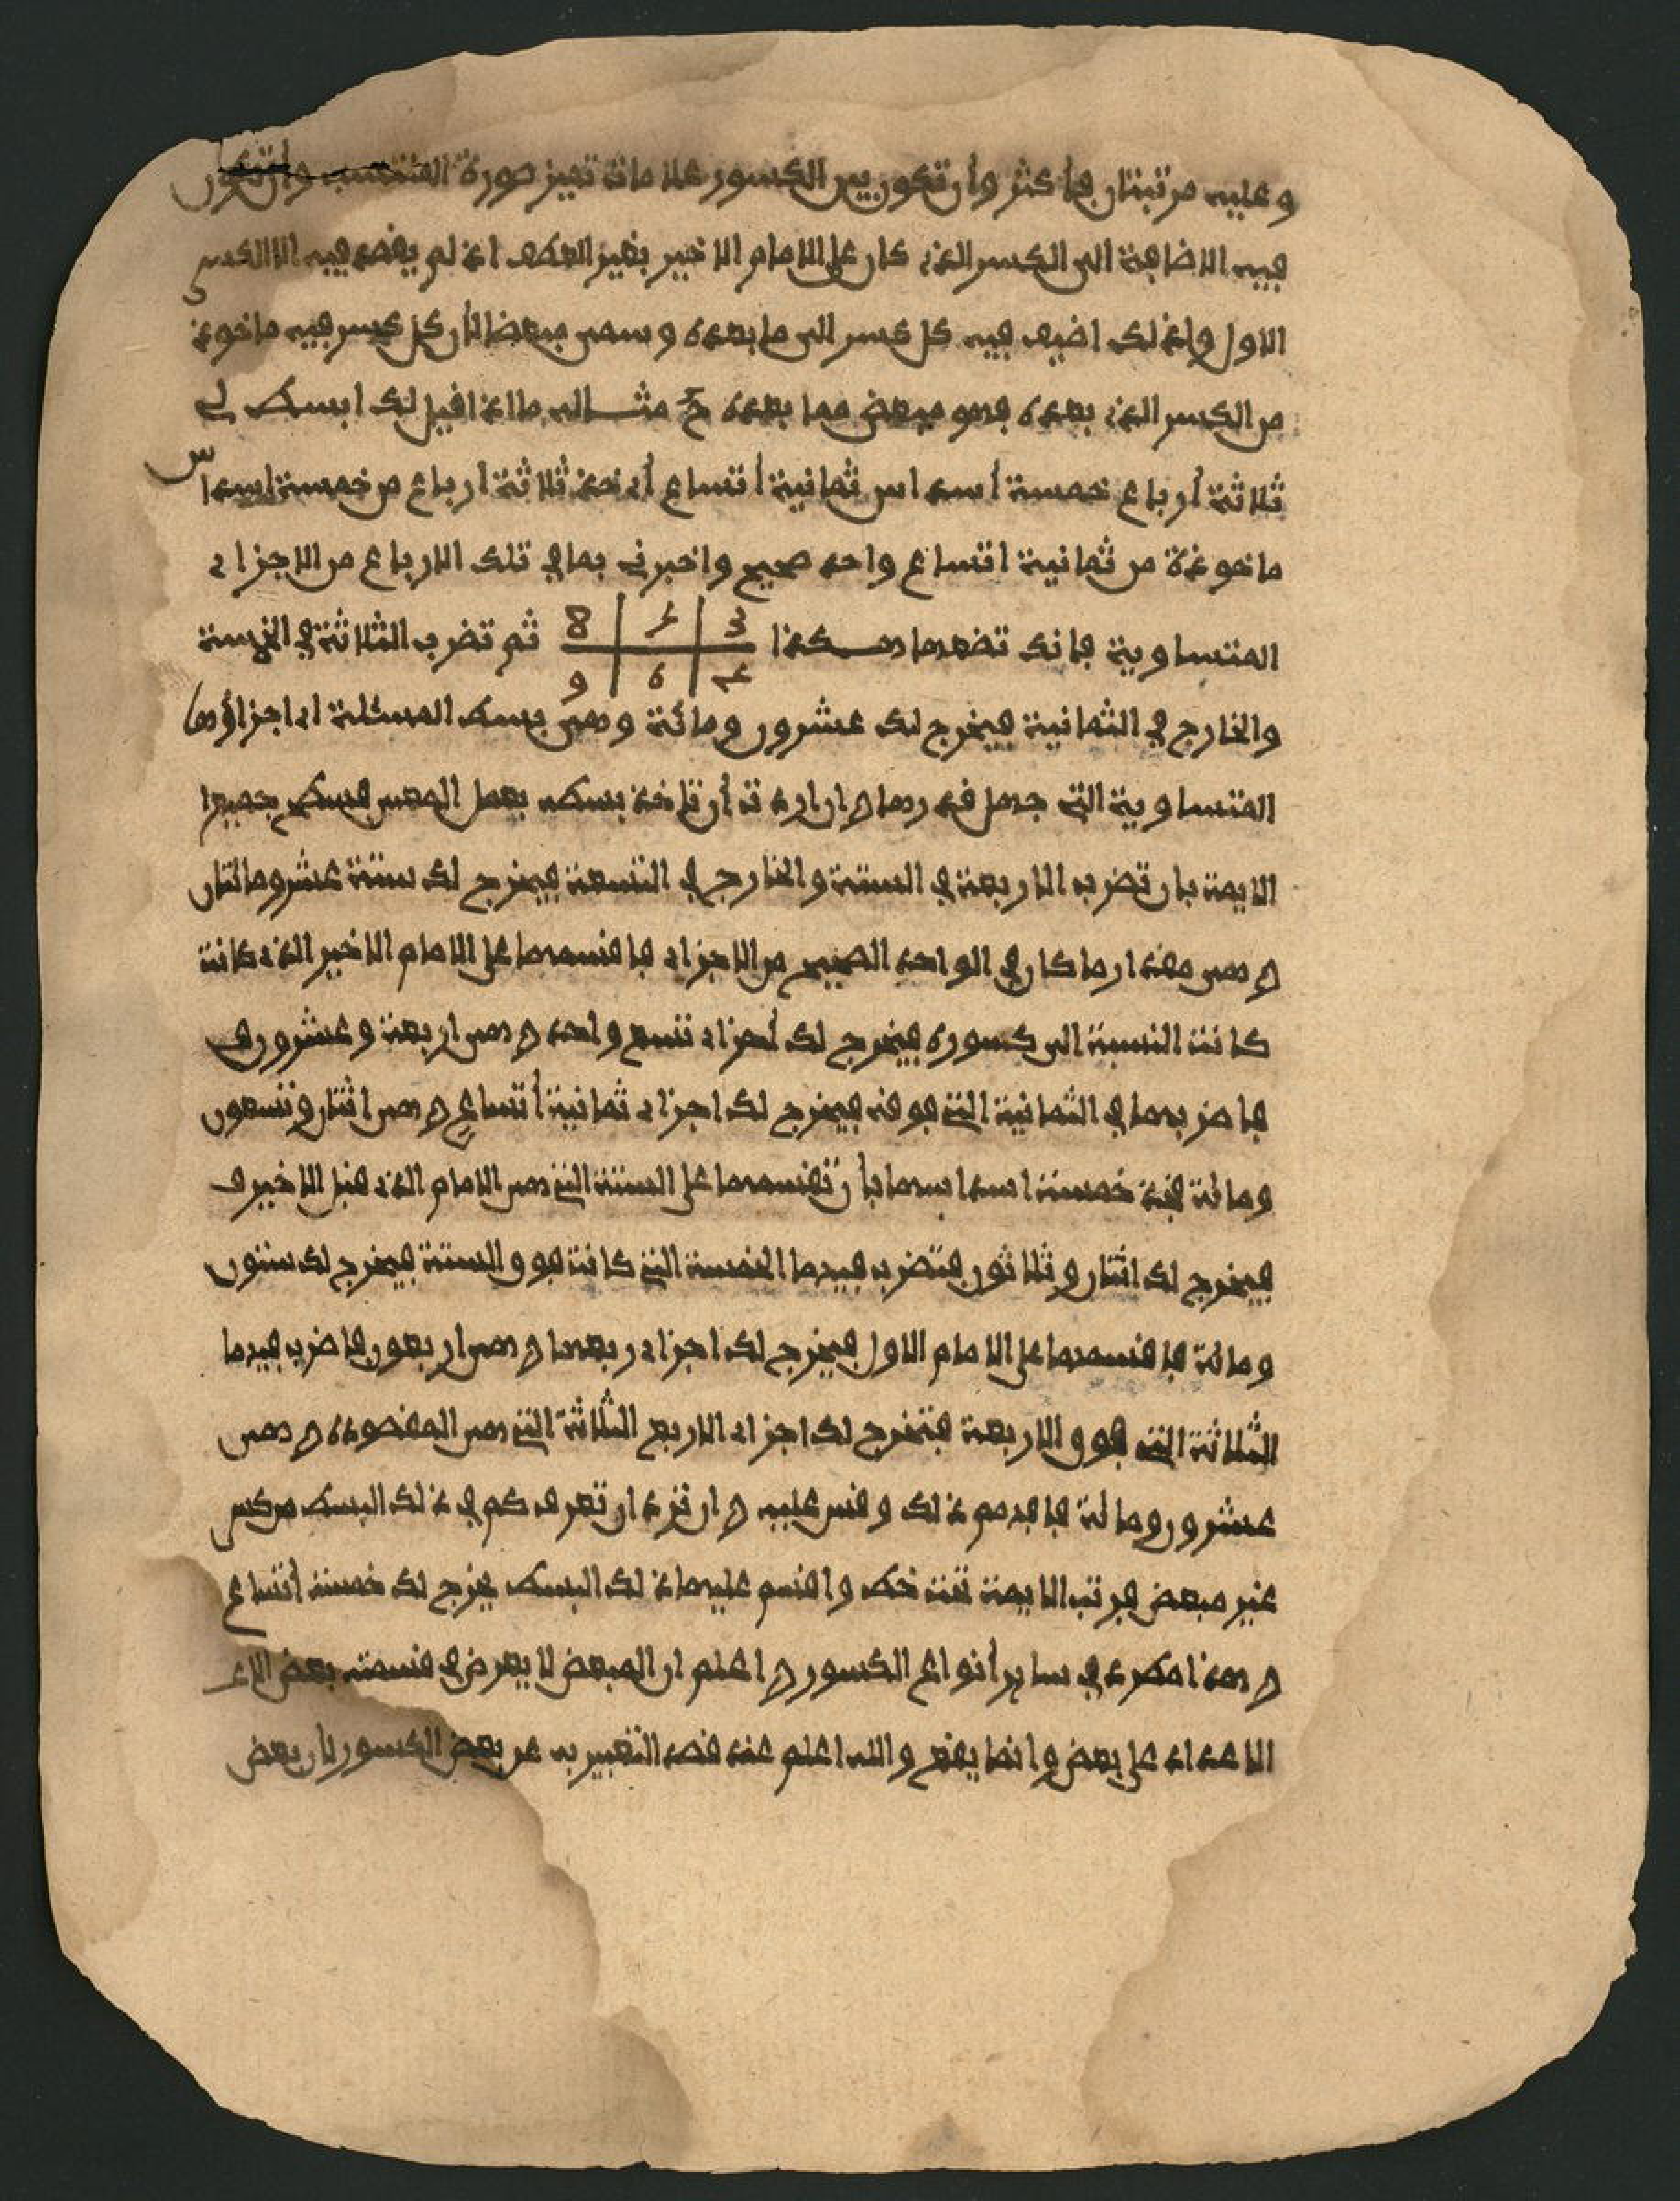 وعليه مرتبتان فأكثر وأن تكون بين الكسور علامات تميز صورة المنتسب وأن تكون
فيه الاضافة الى الكسر الذي كان على الامام الاخير بغير العطف اذ لم يقصد فيه الا الكسر
الاول ولذلك اضيف فيه كل كسر الى ما بعده وسمى مبعضا لأن كل كسر فيه ماخوذ
من الكسر الذي بعده فهو مبعض مما بعده مثاله ما اذا قيل لك ابسط لي
ثلاثة أرباع خمسة أسداس ثمانية أتساع أي خذ ثلاثة أرباع من خمسة اسداس
ماخوذة من ثمانية اتساع واحد صحيح واخبرني بما في تلك الارباع من الاجزاء
المتساوية فانك تضعها هكذا 3 5 8 4 6 9 ثم تضرب الثلاثة في الخمسة
والخارج في الثمانية فيخرج لك عشرون ومائة وهي بسط المسئلة اي اجزاؤها
المتساوية التي جهل قدرها ان اردت أن تاخذ بسطه بعمل المعنى فسطح جميع
الايمة بان تضرب الاربعة في الستة والخارج في التسعة فيخرج لك ستة عشر ومائتان
وهي مقدار ما كان في الواحد الصحيح من الاجزاء فاقسمها على الامام الاخير الذي كانت
كانت النسبة الى كسوره فيخرج لك أجزاء تسع واحد وهي اربعة وعشرون
فاضربها في الثمانية التي فوقه فيخرج لك اجزاء ثمانية أتساع وهي اثنان وتسعون
ومائة فخذ خمسة اسداسها بأن تقسمها على الستة التي هي الامام الذي قبل الاخير
فيخرج لك اثنان وثلاثون فتضرب فيها الخمسة التي كانت فوق الستة فيخرج لك ستون
ومائة فاقسمها على الامام الاول فيخرج لك اجزاء ربعها وهي اربعون فاضرب فيها
الثلاثة التي فوق الاربعة فتخرج لك اجزاء الاربع الثلاثة التي هي المقصودة وهي
عشرون ومائة فافهم ذلك وقس عليه وان ترد ان تعرف كم في ذلك البسط من كسر
غير مبعض فرتب الايمة تحت خط واقسم عليها ذلك البسط يخرج لك خمسة أتساع
وهذا مطرد في ساير أنواع الكسور واعلم ان المبعض لا يعرض في قسمته بعض الاعد
الاعداد على بعض وانما يقع والله اعلم عند قصد التعبير به عن بعض الكسور لأن بعض